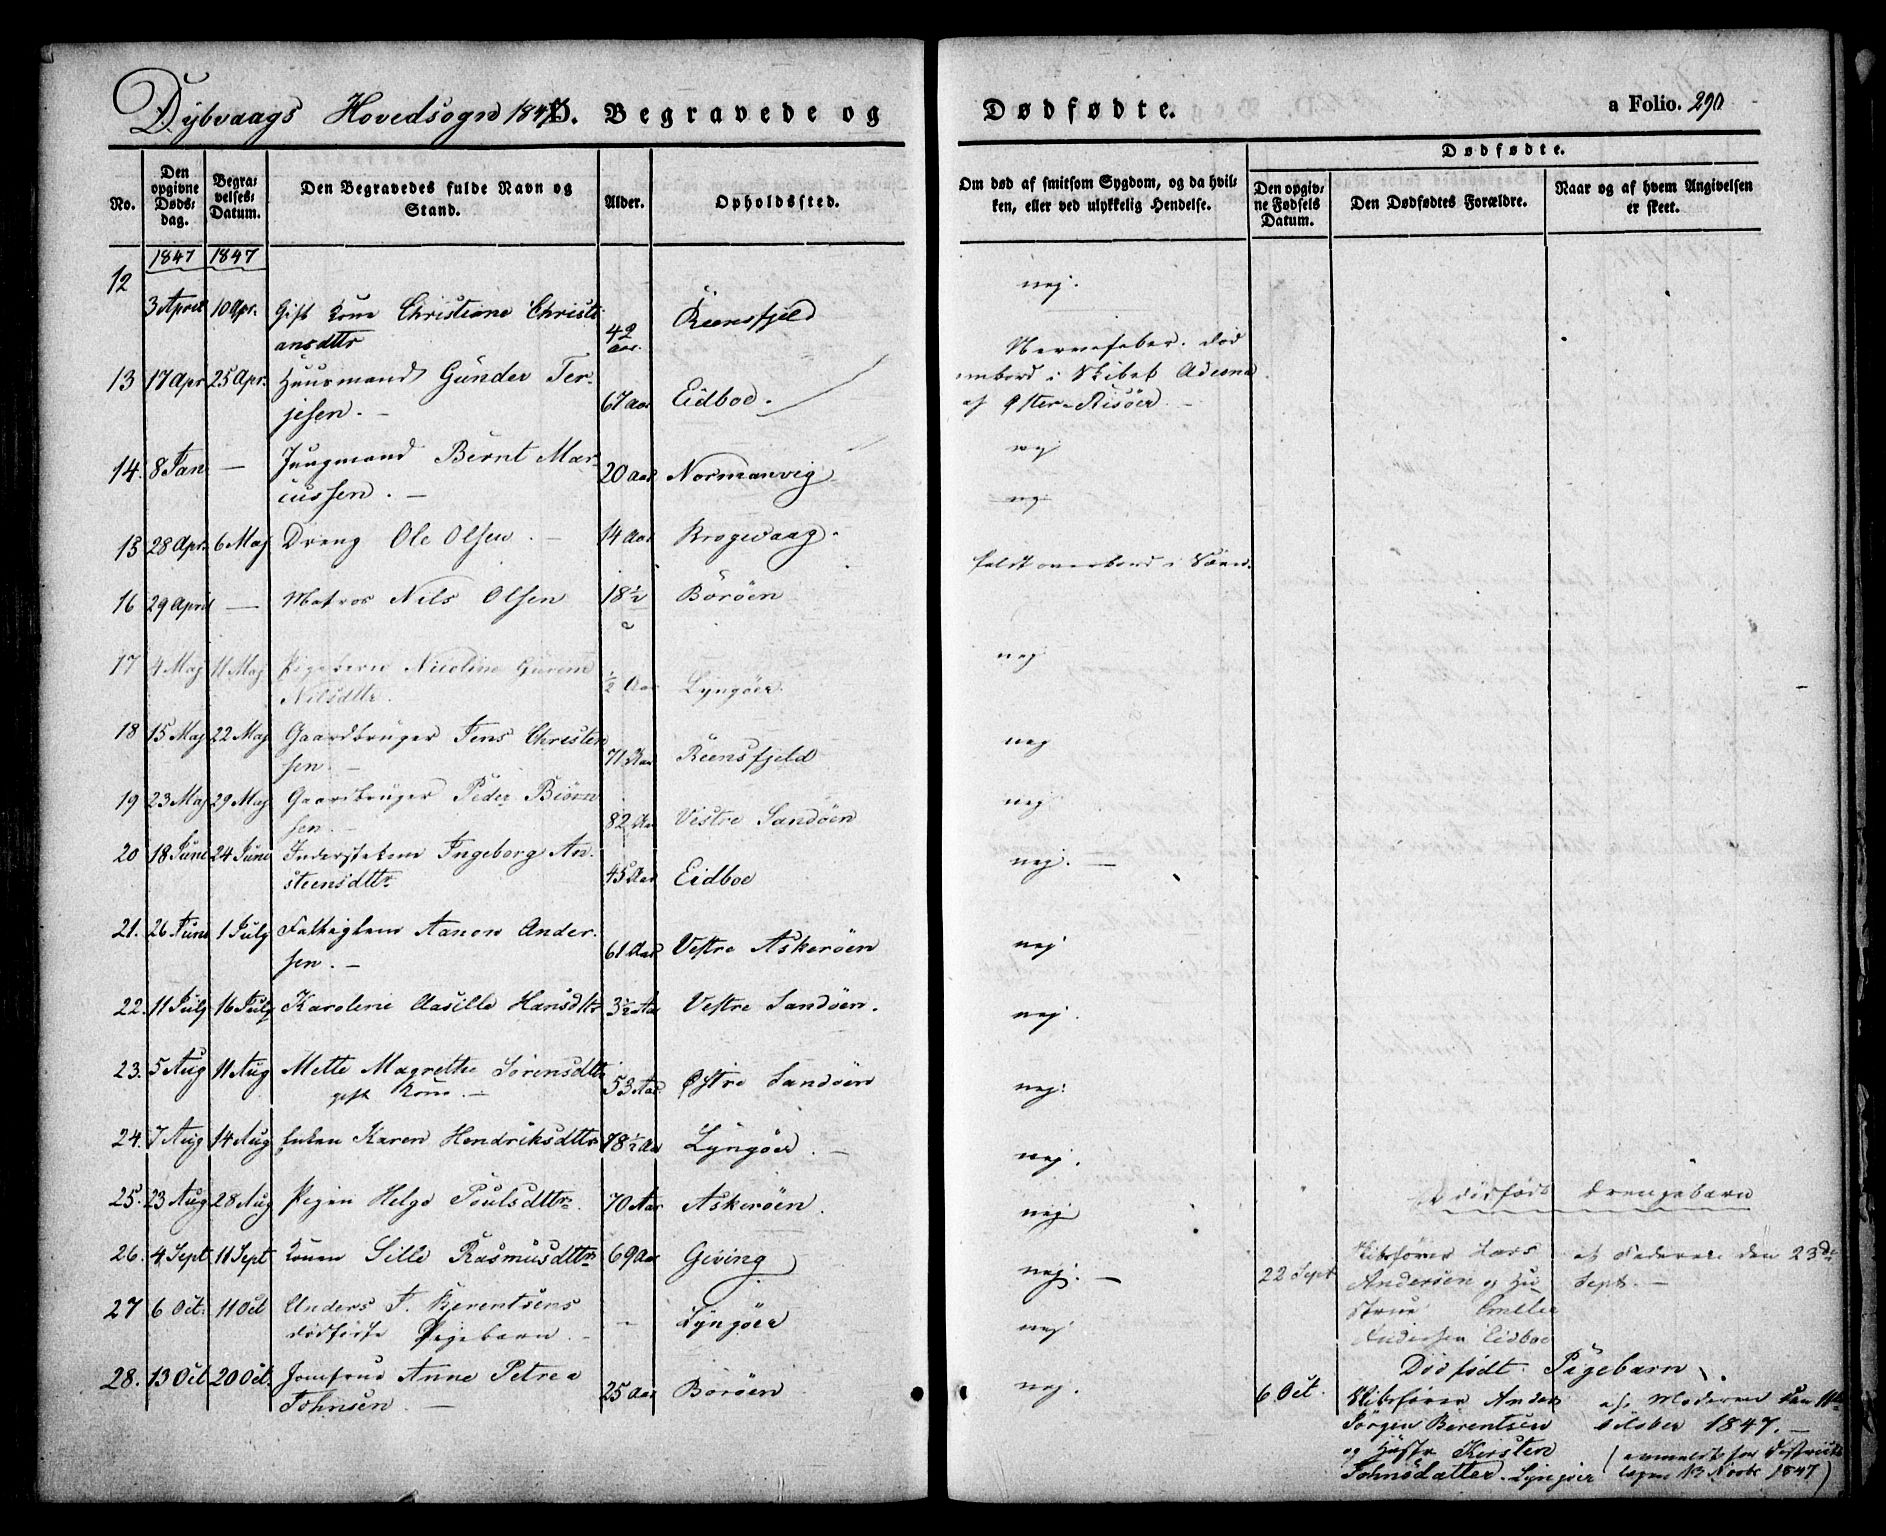 Dybvaags Hovedsogn 1847. D. Begravede og Dødfødte. a Folio. 290
No.
Den opgivne Døds-dag.
Begra-velses-Datum.
Den Begravedes fulde Navn og Stand.
Alder.
Opholdssted.
Om død af smitsom Sygdom, og da hvil-
ken, eller ved ulykkelig Hendelse.
Dødfødte.
Den opgiv-ne Fødsels Datum.
Den Dødfødtes Forældre.
Naar og af hvem Angivelsen er skeet.
1847 1847
12 3 April 10 Apr. Gift Kone Christiane Christi- 42 Reensfjeld nej.
ansdttr aar.
13 17 Apr 25 Apr. Huusmand Gunder Ter- 67 aar Eidboe.
jesen. —
Nervefeber. død
ombord i Skibet
af Øster-Risöer. —
14. 8 Jan — Jungmand Bernt Mar- 20 Aar Normanvig nej
cussen. — nej
15 28 Apr. 6 Maj Dreng Ole Olsen. — 14 Aar Krogevaag.
faldt overbord i Søen.
16 29 April — Matros Nils Olsen 18½ Boröen
17 4 Maj 11 Maj Pigebarn Nicoline Gurine ½ Aar Lyngöer. nej
Nilsdttr.
18 15 Maj 22 Maj Gaardbruger Jens Christen 71 Aar Reensfjeld nej
sen. —
19 23 Maj 29 Maj Gaardbruger Peder Biörn 82 Aar Vestre Sandöen nej
sen. —
20 18 June 24 June Ingeborg An- 45 Aar Eidboe nej. —
steensdttr
21. 26 June 1 July Fattiglem Aanon Ander- 61 Aar Vestre Askeröen nej
sen. —
22. 11 July 16 July Karoline Aasille Hansdttr 3½ Aar Vestre Sandöen. nej.
23. 5 Aug 11 Aug Mette Magrethe Sörensdttr 53 Aar Østre Sandöen nej.
gift Kone. —
24. 7 Aug 14 Aug Enken Karen Hendriksdttr 78½ Aar Lyngöer. — nej.
25. 23 Aug 28 Aug Pigen Helge Poulsdttr. 70 Aar Askeröen. nej
26. 4 Sept 11 Sept Konen Sille Rasmusdttr 69 Aar Geving nej. —
27 6 Oct. 11 Oct Anders J. Berentsens — Lyngöer nej
dödfödte Pigebarn. —
28. 13 Oct 20 Oct. Jomfrue Anne Petrea 25 Aar Boröen nej.
Johnsen —
dödfödt Drengebarn
22 Sept Skibsförer Lars af Faderen den 23de
Andersen og Hu- Sept. —
strue Emilie
Andersen Eidboe
Dödfödt Pigebarn
6 Oct. Skibsförer Anders af Moderen den 11te
Jörgen Berentsen October 1847. —
og Hustr Kirsten (anmeldt for Districts
Johnsdatter. Lyngöer lægen 13 Novbr 1847)